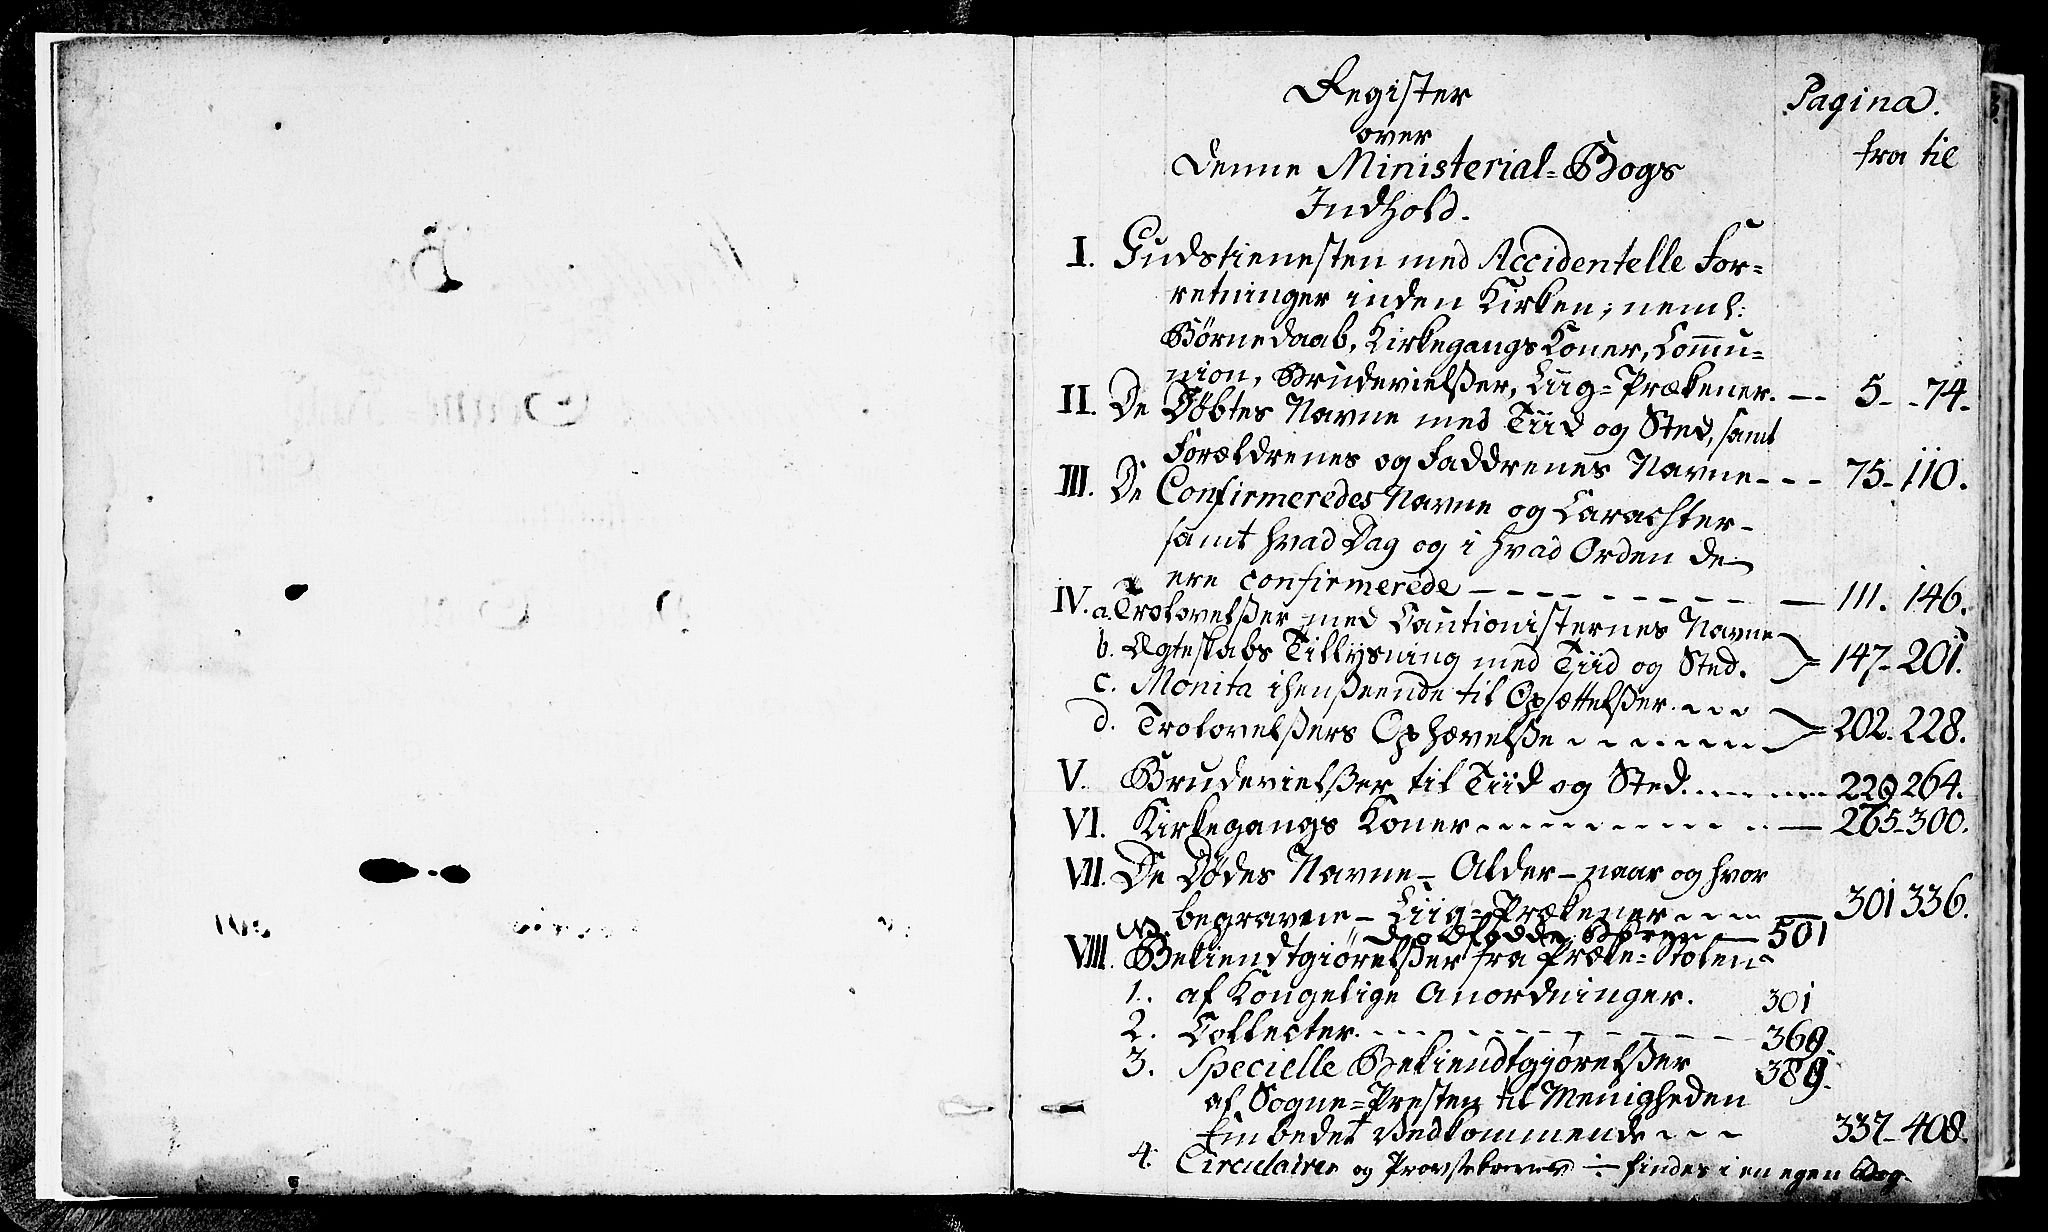 Register
over
denne Ministerial-Bogs
Indhold.
Pagina.
fra til
I. Gudstienesten med Accidentelle For-
retninger inden Kirken; neml:
Børnedaab, Kirkegangs Koner, Commu-
nion, Brudevielßer, Liig-Prækener. — 5 - 74.
II. De Döbtes Navne med Tiid og Sted, samt
Forældrenes og Faddrenes Navne - - - 75 - 110.
III. De Confirmeredes Navne og Carachter -
samt hvad Dag og i hvad Orden de
ere confirmerede - - - - - - - - - — 111. 146.
IV. a. Trolovelßer med Cautionisternes Navne
b. Ægteskabs Tillysning med Tiid og Sted. } 147 - 201.
c. Monita ihenseende til Opsættelßer - - -
d. Trolovelßers Ophævelße - - - - - - - } 202. 228.
V. Brudevielßer til Tiid og Sted. - - - - - 229 264.
VI. Kirkegangs Koner - - - - - - - - - - — 265 - 300.
VII. De Dödes Navne - Alder - naar og hvor
begravne - Liig-Prækener - - - — 301 336.
NB. Dødfødde Børn — 501
VIII. Bekiendtgiörelßer fra Præke-Stolen -
1. af Kongelige Anordninger. 301
2. Collecter. - - - - - - - - - - - 369.
3. Specielle Bekiendtgjørelßer 389.
af Sogne-Presten til Menigheden
Embedet Vedkommende - - - 337 - 408.
4. Circulairer og Provstebreve ÷ findes i en egen Bog.